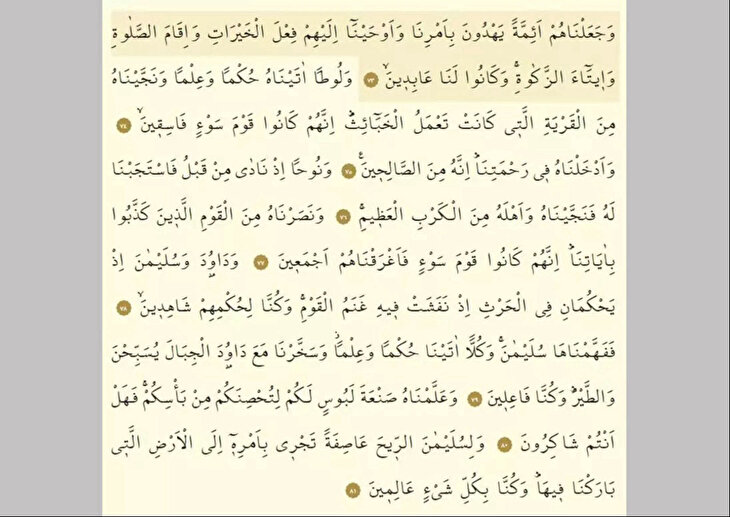 وَجَعَلْنَاهُمْ اَئِمَّةً يَهْدُونَ بِاَمْرِنَا وَاَوْحَيْنَٓا اِلَيْهِمْ فِعْلَ الْخَيْرَاتِ وَاِقَامَ الصَّلٰوةِ
وَا۪يتَٓاءَ الزَّكٰوةِۚ وَكَانُوا لَنَا عَابِد۪ينَۙ ﴿٧٣﴾ وَلُوطًا اٰتَيْنَاهُ حُكْمًا وَعِلْمًا وَنَجَّيْنَاهُ
مِنَ الْقَرْيَةِ الَّت۪ي كَانَتْ تَعْمَلُ الْخَبَٓائِثَۜ اِنَّهُمْ كَانُوا قَوْمَ سَوْءٍ فَاسِق۪ينَۙ ﴿٧٤﴾
وَاَدْخَلْنَاهُ ف۪ي رَحْمَتِنَاۜ اِنَّهُ مِنَ الصَّالِح۪ينَ۟ ﴿٧٥﴾ وَنُوحًا اِذْ نَادٰى مِنْ قَبْلُ فَاسْتَجَبْنَا
لَهُ فَنَجَّيْنَاهُ وَاَهْلَهُ مِنَ الْكَرْبِ الْعَظ۪يمِۚ ﴿٧٦﴾ وَنَصَرْنَاهُ مِنَ الْقَوْمِ الَّذ۪ينَ كَذَّبُوا
بِاٰيَاتِنَاۜ اِنَّهُمْ كَانُوا قَوْمَ سَوْءٍ فَاَغْرَقْنَاهُمْ اَجْمَع۪ينَ ﴿٧٧﴾ وَدَاوُ۫دَ وَسُلَيْمٰنَ اِذْ
يَحْكُمَانِ فِي الْحَرْثِ اِذْ نَفَشَتْ ف۪يهِ غَنَمُ الْقَوْمِۚ وَكُنَّا لِحُكْمِهِمْ شَاهِد۪ينَۙ ﴿٧٨﴾
فَفَهَّمْنَاهَا سُلَيْمٰنَۚ وَكُلًّا اٰتَيْنَا حُكْمًا وَعِلْمًاۘ وَسَخَّرْنَا مَعَ دَاوُ۫دَ الْجِبَالَ يُسَبِّحْنَ
وَالطَّيْرَۜ وَكُنَّا فَاعِل۪ينَ ﴿٧٩﴾ وَعَلَّمْنَاهُ صَنْعَةَ لَبُوسٍ لَكُمْ لِتُحْصِنَكُمْ مِنْ بَأْسِكُمْۚ فَهَلْ
اَنْتُمْ شَاكِرُونَ ﴿٨٠﴾ وَلِسُلَيْمٰنَ الرّ۪يحَ عَاصِفَةً تَجْر۪ي بِاَمْرِه۪ٓ اِلَى الْاَرْضِ الَّت۪ي
بَارَكْنَا ف۪يهَاۜ وَكُنَّا بِكُلِّ شَيْءٍ عَالِم۪ينَ ﴿٨١﴾